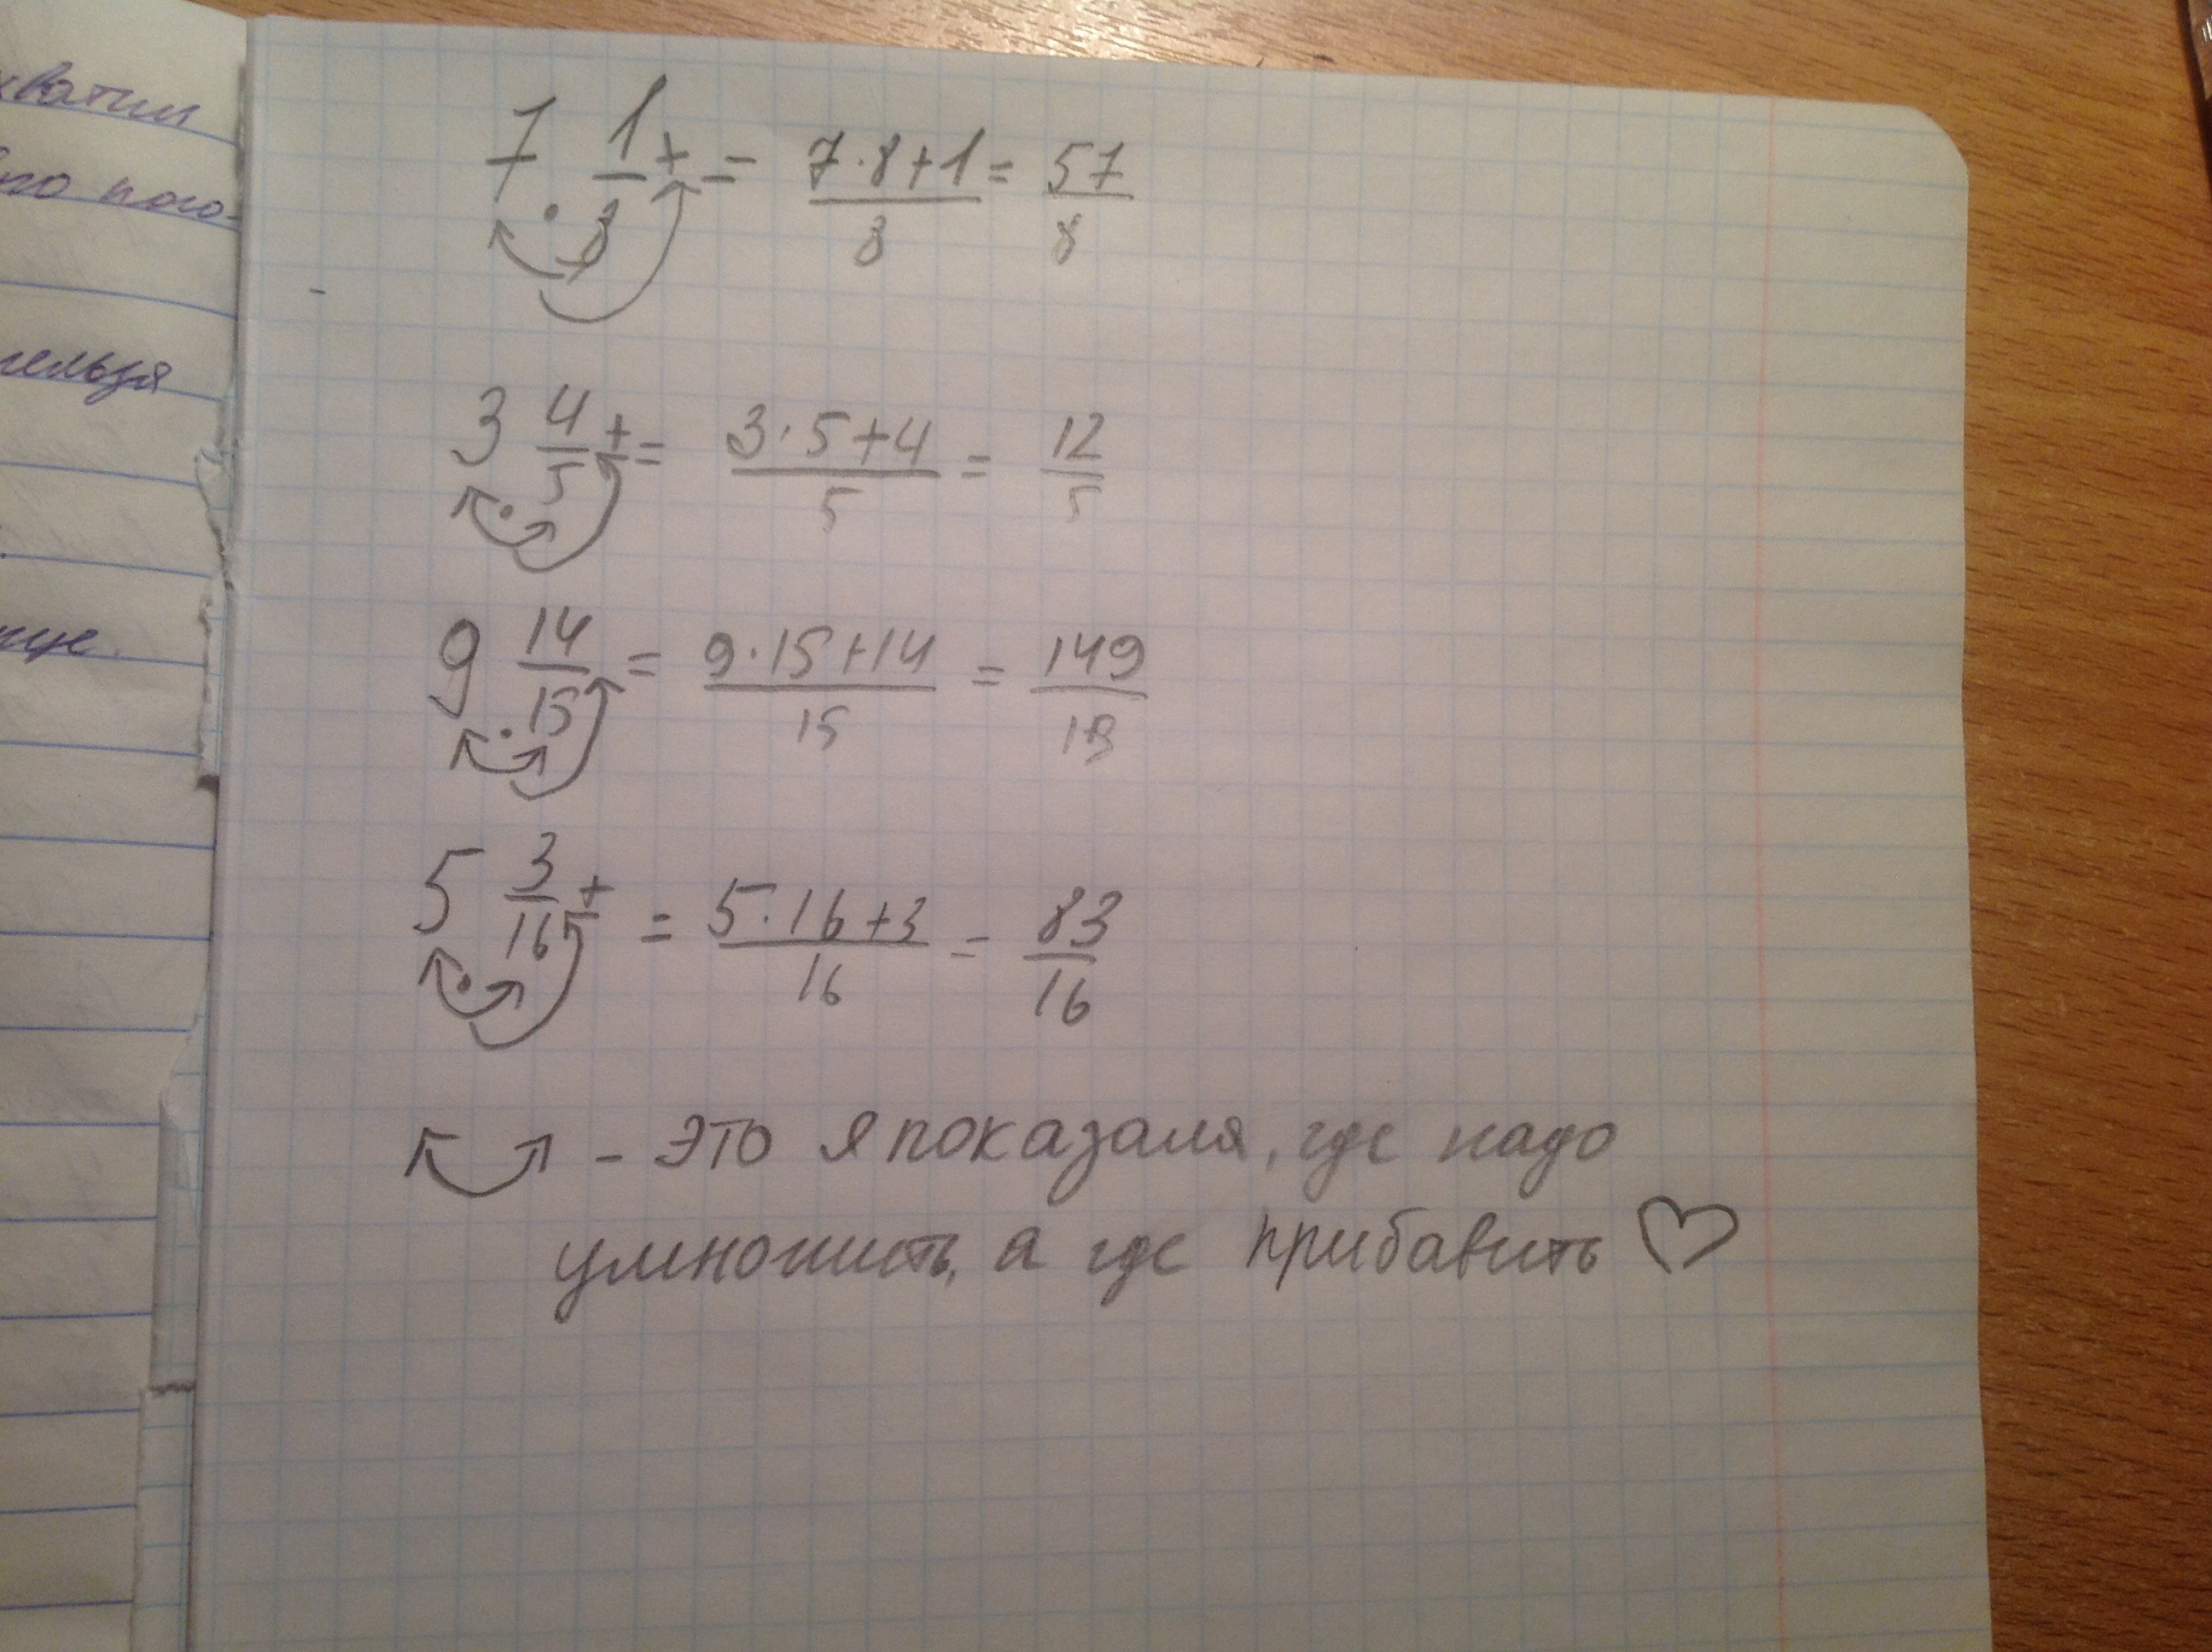 хватил
пого-
нельзя
7 1/8 + = (7·8+1)/8 = 57/8
3 4/5 + = (3·5+4)/5 = 12/5
9 14/15 = (9·15+14)/15 = 149/15
5 3/16 + = (5·16+3)/16 = 83/16
– это я показаля, где надо
умножить, а где прибавить ♡